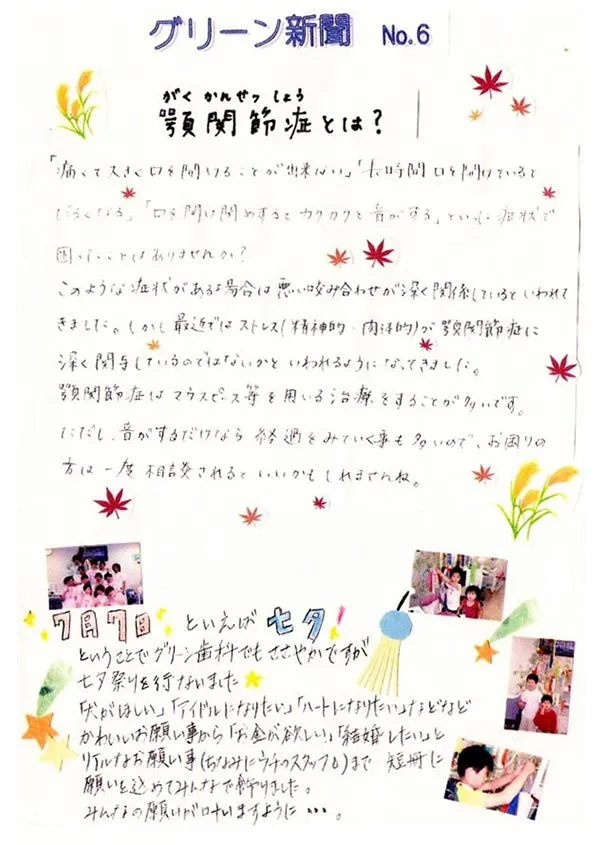 グリーン新聞 No.6
がく かんせつ しょう
顎関節症とは?
「痛くて大きく口を開けることが出来ない」「長時間口を開けていると
だるくなる」「口を開け閉めするとカクカクと音がする」といった症状で
困ったことはありませんか?
このような症状がある場合は悪い咬み合わせが深く関係しているといわれて
きました。しかし最近ではストレス(精神的・肉体的)が顎関節症に
深く関与しているのではないかといわれるようになってきました。
顎関節症はマウスピース等を用いる治療をすることが多いです。
ただし、音がするだけなら経過をみていく事も多いので、お困りの
方は一度相談されるといいかもしれませんね。
7月7日といえば七夕!
ということでグリーン歯科でもささやかですが
七夕祭りを行ないました
「犬がほしい」「アイドルになりたい」「ハートになりたい」などなど
かわいいお願い事から「お金が欲しい!」「結婚したい」と
リアルなお願い事(ちなみにウチのスタッフ)まで 短冊に
願いを込めてみんなで飾りました。
みんなの願いが叶いますように…。